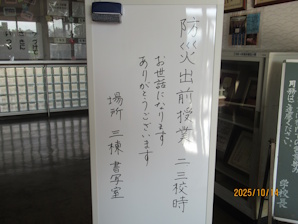 防災出前授業 二三校時
お世話になります
ありがとうございます
場所 三棟 書写室
学校長
2025/10/14